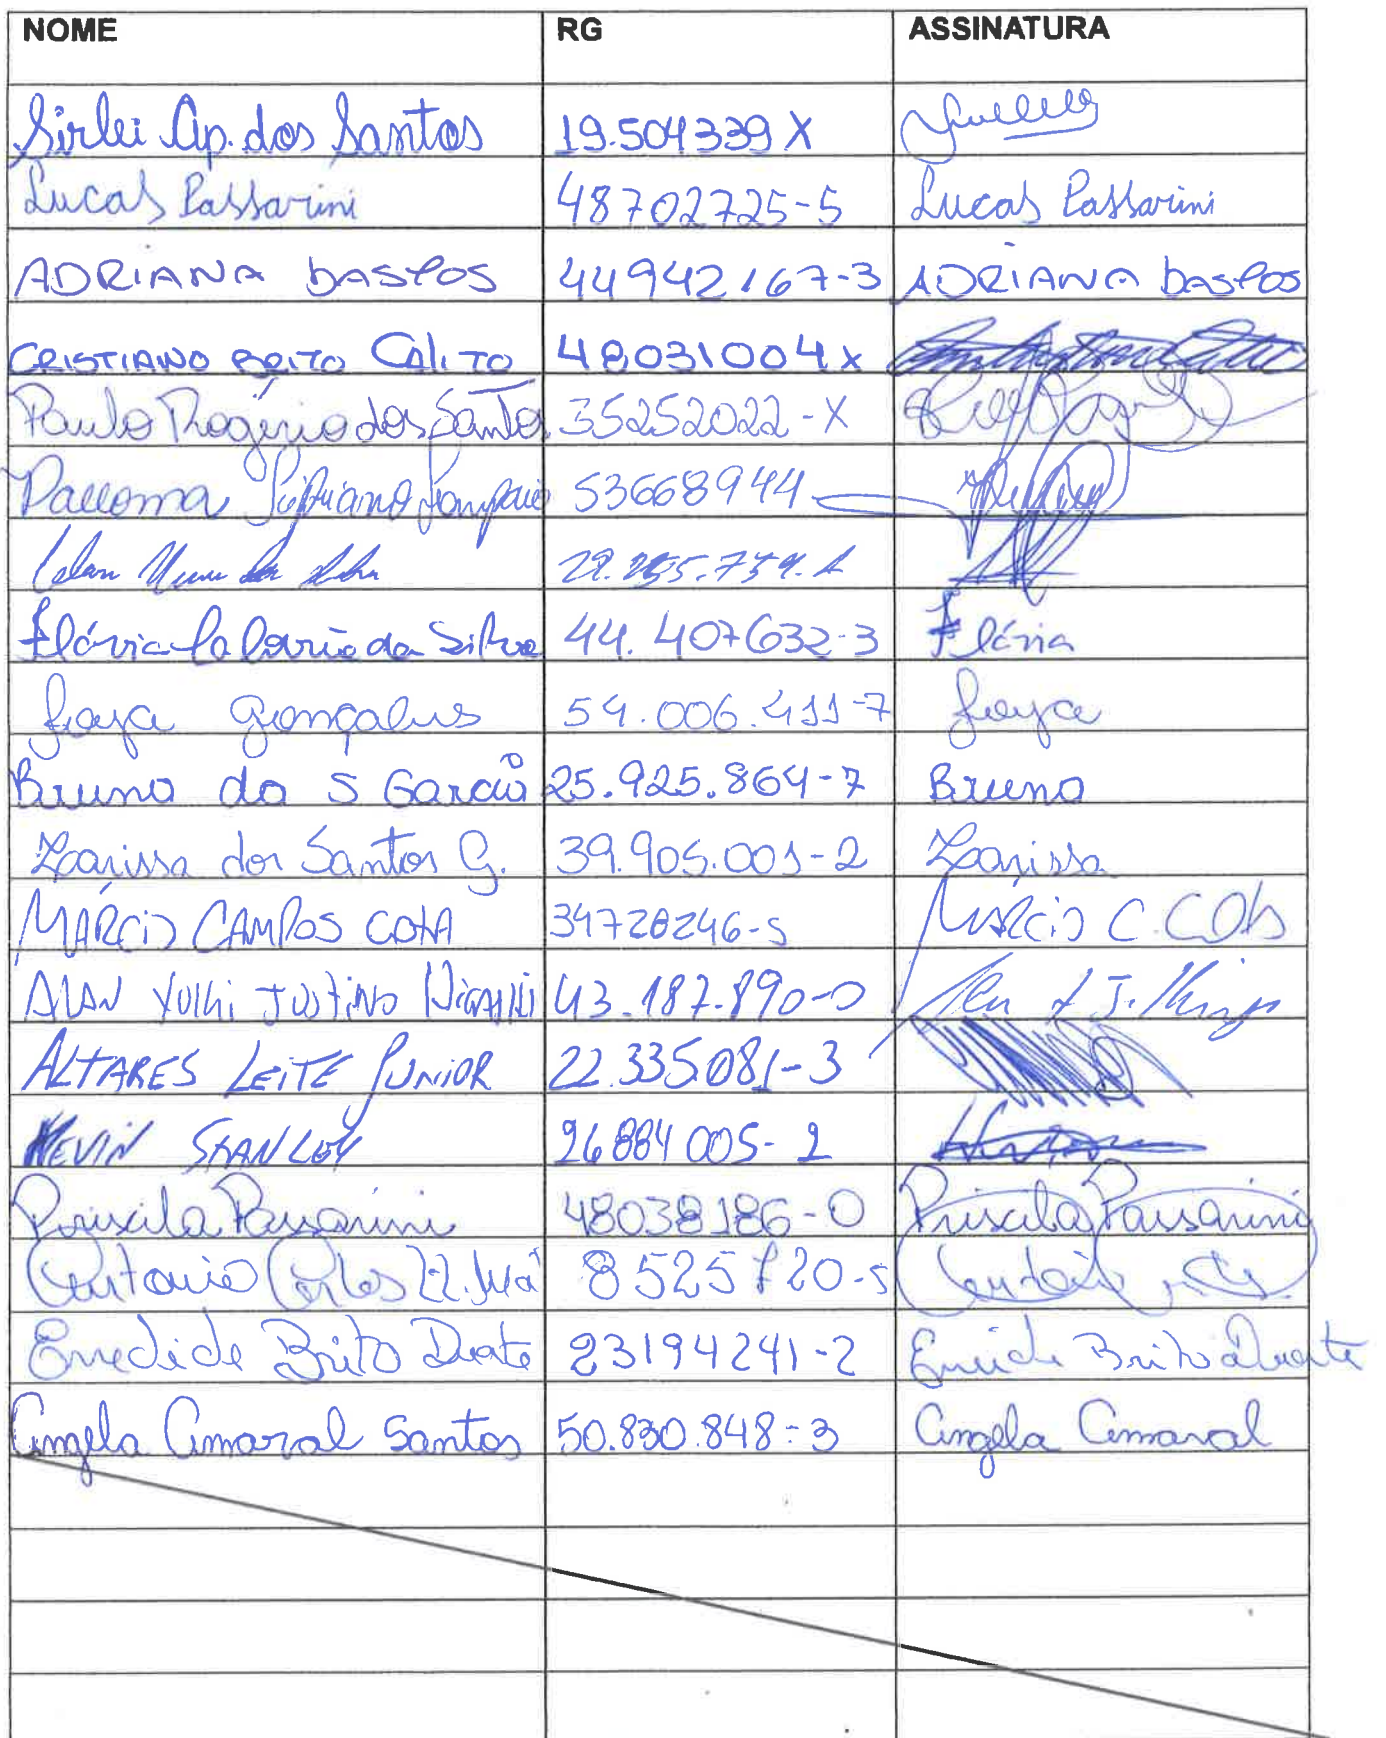 NOME RG ASSINATURA
Sirlei Ap. dos Santos 19.504339 X
Lucas Passarini 48702725-5 Lucas Passarini
ADRIANA BASTOS 44942167-3 ADRIANA BASTOS
CRISTIANO BRITO CALITO 48031004 X
Paulo Rogério dos Santos 35252022-X
Palloma Sampaio 536689444
da
Flávia da Silva 44.407632-3 Flávia
Joyce Gonçalves 54.006.411-7 Joyce
Bruno da S Garcia 25.925.864-7 Bruno
Larissa dos Santos G. 39.905.001-2 Larissa
MÁRCIO CAMPOS COTA 34728246-5 MÁRCIO C. COTA
ALAN YUKHI JUSTINO 43.187.890-0
ALTARES LEITE JUNIOR 22.335.081-3
KEVIN STANLEY 26884005-2
Priscila Passarini 48038186-0 Priscila Passarini
Antonio Carlos 8525720-5 Antonio
Enedide Brito Duarte 23194241-2 Brito Duarte
Angela Amaral Santos 50.830.848-3 Angela Amaral